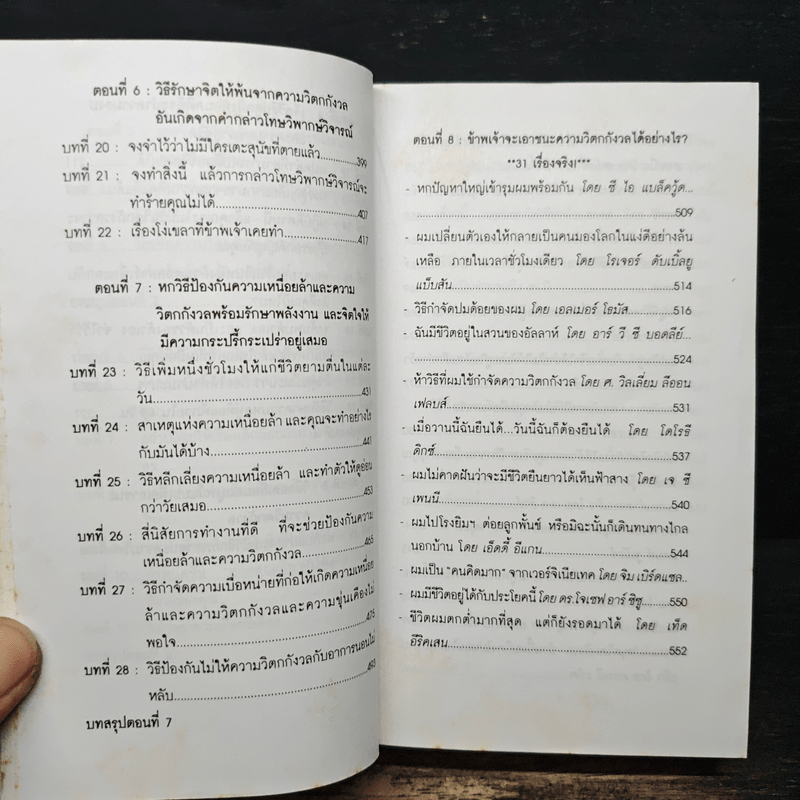 ตอนที่ 6 : วิธีรักษาจิตให้พ้นจากความวิตกกังวล
อันเกิดจากคำกล่าวโทษวิพากษ์วิจารณ์
บทที่ 20 : จงจำไว้ว่าไม่มีใครเตะสุนัขที่ตายแล้ว..................399
บทที่ 21 : จงทำสิ่งนี้ แล้วการกล่าวโทษวิพากษ์วิจารณ์จะ
ทำร้ายคุณไม่ได้...................................407
บทที่ 22 : เรื่องโง่เขลาที่ข้าพเจ้าเคยทำ.......................417
ตอนที่ 7 : หกวิธีป้องกันความเหนื่อยล้าและความ
วิตกกังวลพร้อมรักษาพลังงาน และจิตใจให้
มีความกระปรี้กระเปร่าอยู่เสมอ
บทที่ 23 : วิธีเพิ่มหนึ่งชั่วโมงให้แก่ชีวิตยามตื่นในแต่ละ
วัน.............................................431
บทที่ 24 : สาเหตุแห่งความเหนื่อยล้า และคุณจะทำอย่างไร
กับมันได้บ้าง......................................441
บทที่ 25 : วิธีหลีกเลี่ยงความเหนื่อยล้า และทำตัวให้ดูอ่อน
กว่าวัยเสมอ.......................................453
บทที่ 26 : สี่นิสัยการทำงานที่ดี ที่จะช่วยป้องกันความ
เหนื่อยล้าและความวิตกกังวล...................465
บทที่ 27 : วิธีกำจัดความเบื่อหน่ายที่ก่อให้เกิดความเหนื่อย
ล้าและความวิตกกังวลและความขุ่นเคืองไม่
พอใจ............................................475
บทที่ 28 : วิธีป้องกันไม่ให้ความวิตกกังวลกับอาการนอนไม่
หลับ.............................................493
บทสรุปตอนที่ 7
ตอนที่ 8 : ข้าพเจ้าจะเอาชนะความวิตกกังวลได้อย่างไร?
**31 เรื่องจริง!***
- หกปัญหาใหญ่เข้ารุมผมพร้อมกัน โดย ซี ไอ แบล็ควู้ด...
.....................................................509
- ผมเปลี่ยนตัวเองให้กลายเป็นคนมองโลกในแง่ดีอย่างล้น
เหลือ ภายในเวลาชั่วโมงเดียว โดย โรเจอร์ ดับเบิ้ลยู
แบ็บสัน............................................514
- วิธีกำจัดปมด้อยของผม โดย เอลเมอร์ โธมัส............516
- ฉันมีชีวิตอยู่ในสวนของอัลลาห์ โดย อาร์ วี ซี บอดลีย์...
.....................................................524
- ห้าวิธีที่ผมใช้กำจัดความวิตกกังวล โดย ศ. วิลเลี่ยม ลีออน
เฟลบส์.............................................531
- เมื่อวานนี้ฉันยืนได้...วันนี้ฉันก็ต้องยืนได้ โดย โดโรธี
ดิกซ์...............................................537
- ผมไม่คาดฝันว่าจะมีชีวิตยืนยาวได้เห็นฟ้าสาง โดย เจ ซี
เพนนี..............................................540
- ผมไปโรงยิมฯ ต่อยลูกพั้นช์ หรือมิฉะนั้นก็เดินทนทางไกล
นอกบ้าน โดย เอ็ดดี้ อีแกน........................544
- ผมเป็น "คนคิดมาก" จากเวอร์จิเนียเทค โดย จิม เบิร์ดแซล..
- ผมมีชีวิตอยู่ได้กับประโยคนี้ โดย ดร.โจเซฟ อาร์ ซิซู....550
- ชีวิตผมตกต่ำมากที่สุด แต่ก็ยังรอดมาได้ โดย เท็ด
อีริคเสน............................................552